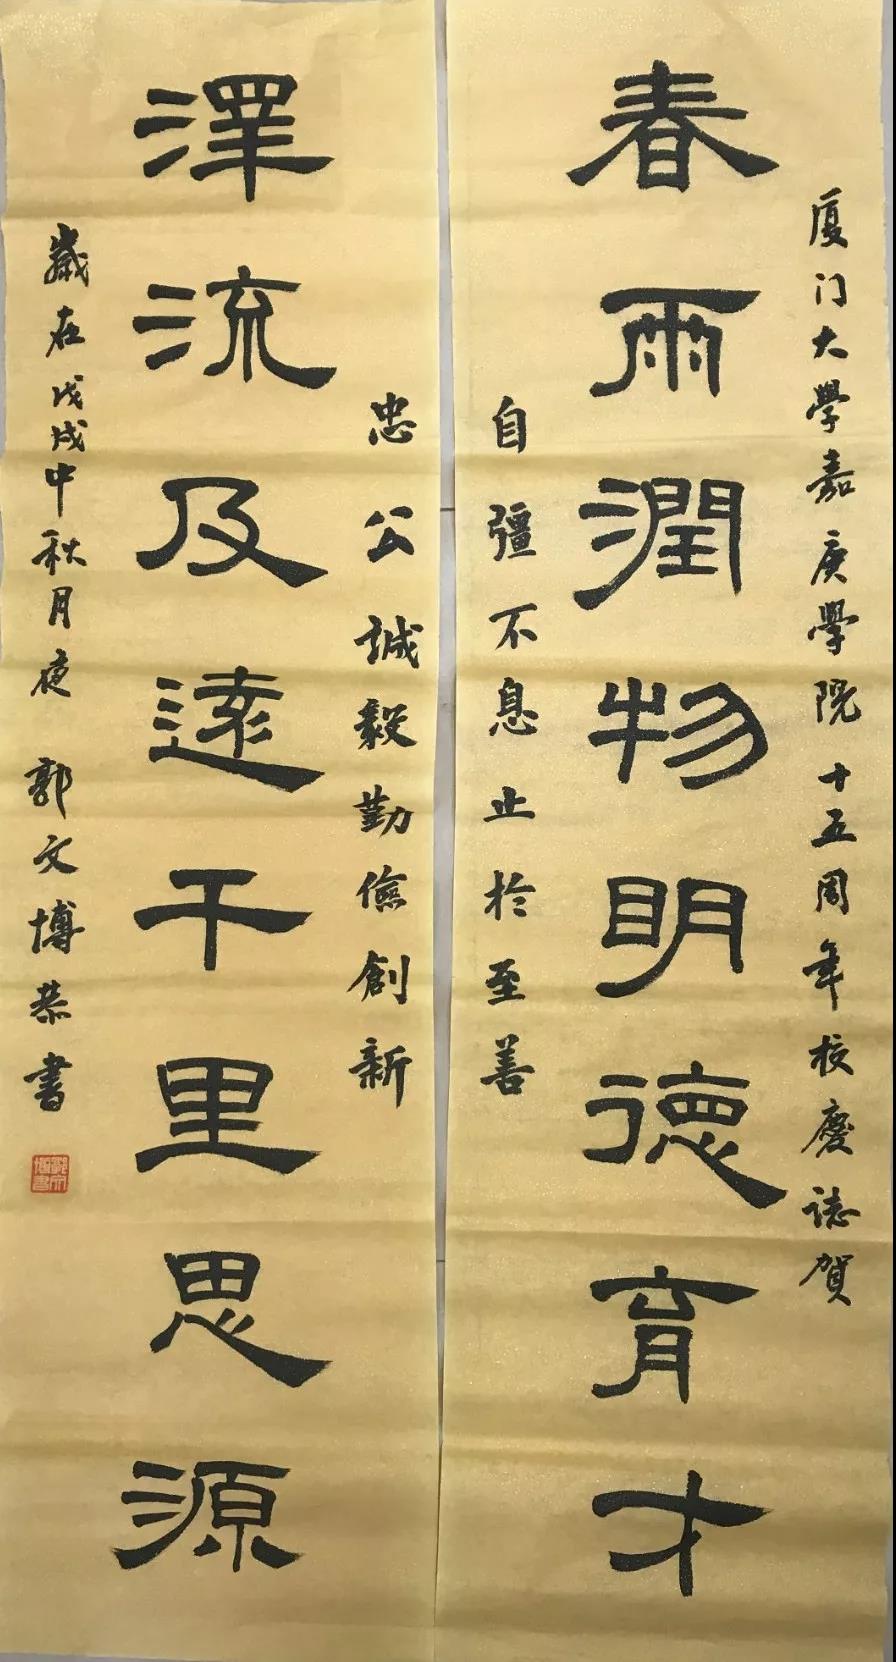 厦门大學嘉庚學院十五周年校慶誌賀
春雨潤物明德育才
自彊不息止於至善
忠公誠毅勤儉創新
澤流及遠千里思源
歲在戊戌中秋月夜 郭文博恭書